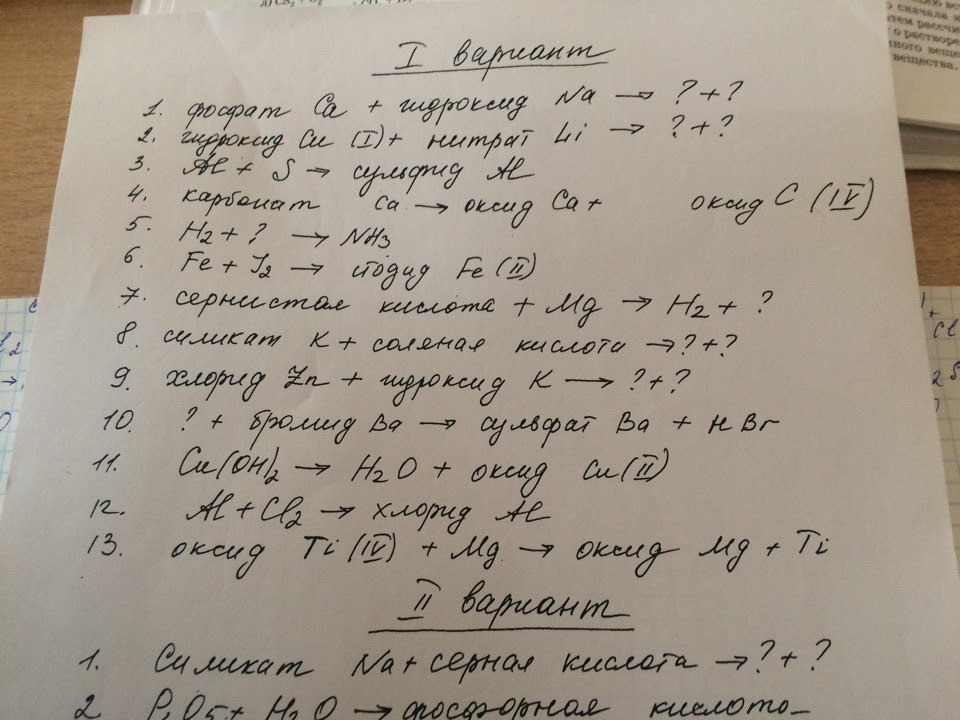 I вариант
1. фосфат Ca + гидроксид Na → ? + ?
2. гидроксид Cu (I) + нитрат Li → ? + ?
3. Al + S → сульфид Al
4. карбонат Ca → оксид Ca + оксид C (IV)
5. H2 + ? → NH3
6. Fe + J2 → йодид Fe (II)
7. сернистая кислота + Mg → H2 + ?
8. силикат K + соляная кислота → ? + ?
9. хлорид Zn + гидроксид K → ? + ?
10. ? + бромид Ba → сульфат Ba + HBr
11. Cu(OH)2 → H2O + оксид Cu(II)
12. Al + Cl2 → хлорид Al
13. оксид Ti (IV) + Mg → оксид Mg + Ti
II вариант
1. Силикат Na + серная кислота → ? + ?
2 P2O5 + H2O → фосфорная кислота